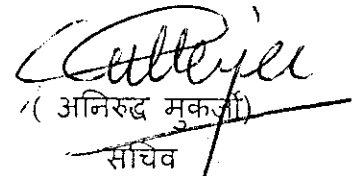 ( अनिरुद्ध मुकर्जी)
सचिव